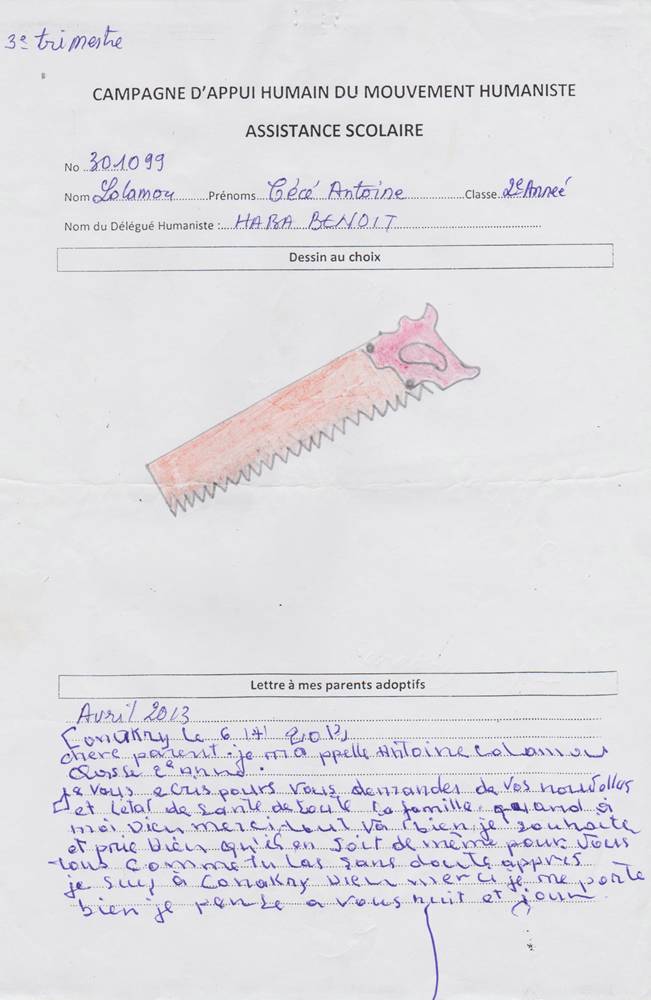 3e trimestre
CAMPAGNE D'APPUI HUMAIN DU MOUVEMENT HUMANISTE
ASSISTANCE SCOLAIRE
No 301099
Nom Lolamou Prénoms Cécé Antoine Classe 2e Anneé
Nom du Délégué Humaniste : HABA BENOIT
Dessin au choix
Lettre à mes parents adoptifs
Avril 2013
Conakry le 6 2013
chere parent je ma ppelle Antoine Lolamou
Classe 2e anne.
je vous ecris pours vous demandes de vos nouvelles
et letat de sante de toute la famille quand à
moi Dieu merci tout va bien je souhaite
et prie Dieu qu'il en soit de même pour vous
tous Comme tu las sans doute appres
je suis à Conakry Dieu merci je me porte
bien je pense a vous nuit et jour.